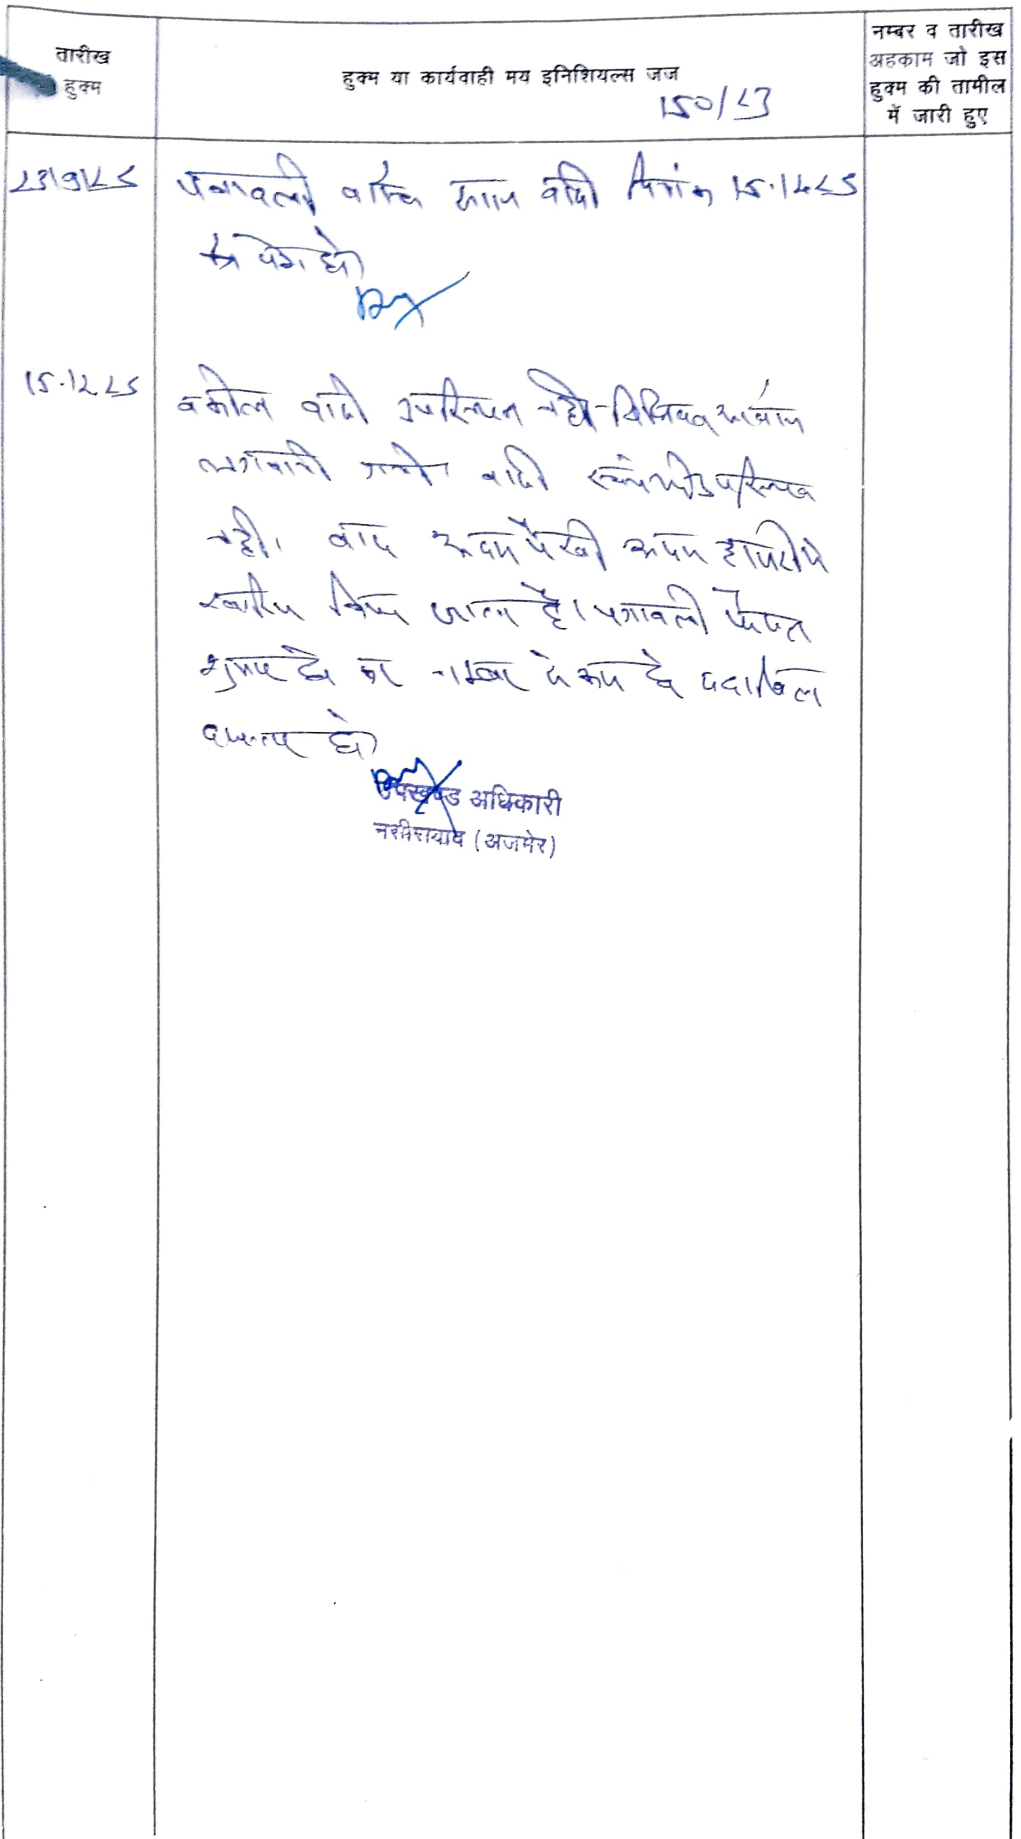 तारीख
हुक्म
हुक्म या कार्यवाही मय इनिशियल्स जज
नम्बर व तारीख
अहकाम जो इस
हुक्म की तामील
में जारी हुए
150/23
23/9/25 पत्रावली वास्ते वादी दिनांक 15.12.25
को पेश हो
15.12.25 वकील वादी उपस्थित नहीं विधिवत आवाज
लगवायी गयी वादी स्वयं भी उपस्थित
नहीं। वाद अदम पैरवी अदम हाजरी में
खारिज किया जाता है। पत्रावली फैसल
शुमार हो कर नम्बर से कम हो दाखिल
दफ्तर हो
उपखण्ड अधिकारी
नसीराबाद (अजमेर)